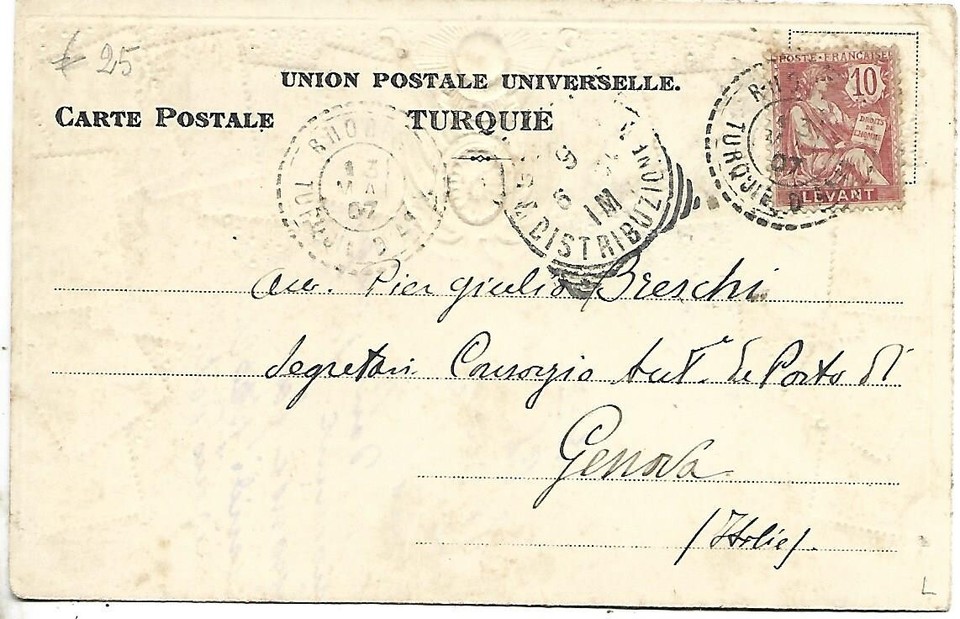 £ 25
UNION POSTALE UNIVERSELLE.
CARTE POSTALE
TURQUIE
RHODES
13
MAI
07
TURQUIE D'ASIE
9
6
1M
DISTRIBUZIONE
POSTE FRANÇAISE
10
DROITS
DE
L'HOMME
LEVANT
07
TURQUIE D
Avv. Pier Giulio Breschi
Segretari Consorzio Aut. de Porto di
Genova
(Italie).
L